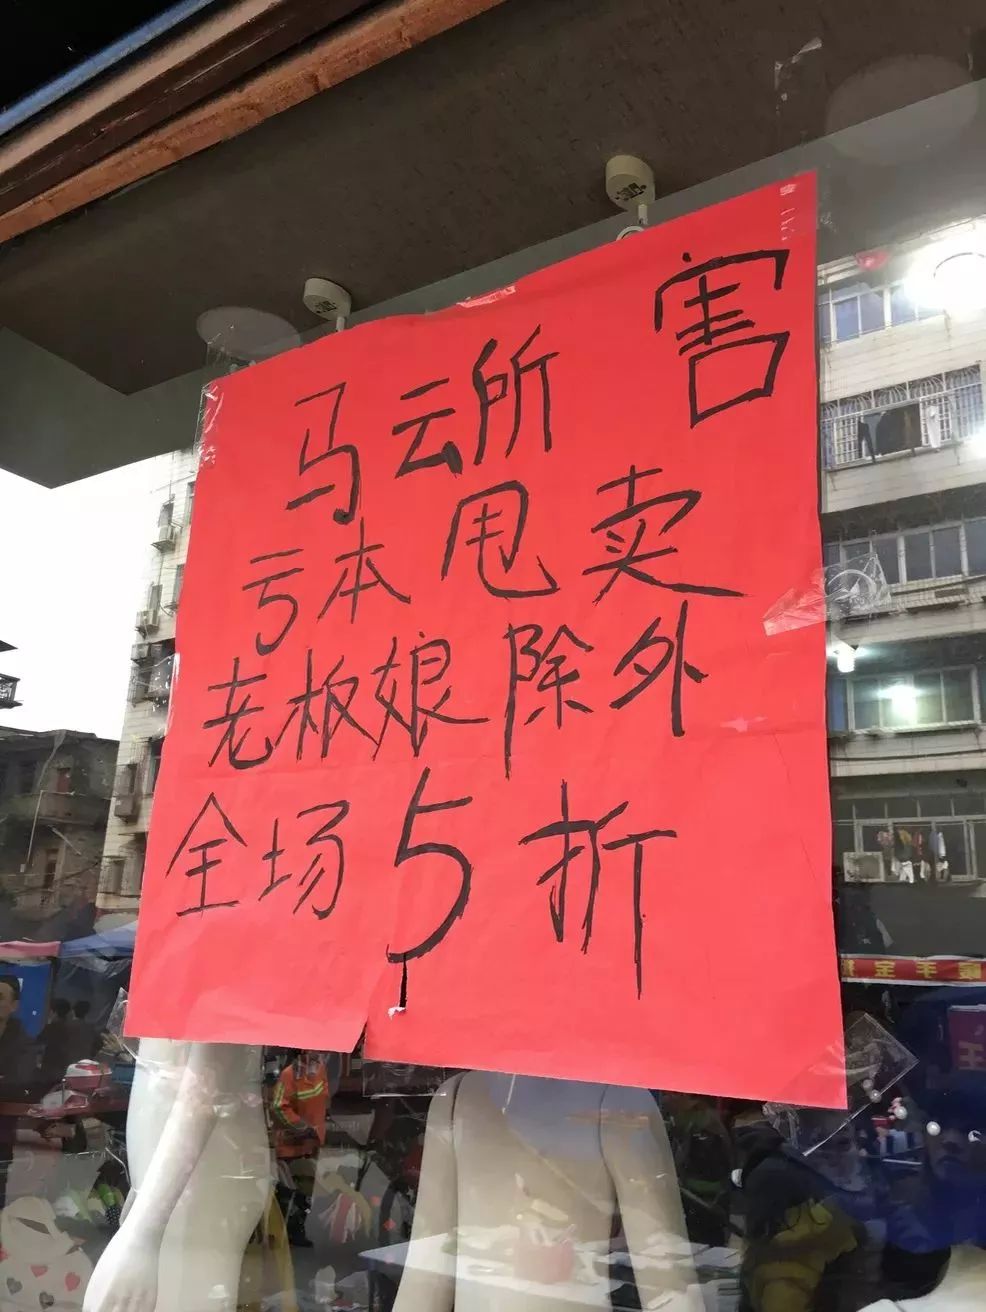 马云所 害
亏本甩卖
老板娘除外
全场5折